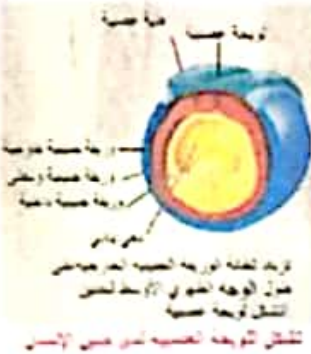 ثنية عصبية
لويحة عصبية
وريقة جنينية خارجية
وريقة جنينية وسطى
وريقة جنينية داخلية
معي بدئي
تزداد ثخانة الوريقة الجنينية الخارجية على
طول الوجه الظهري الأوسط للجنين
لتشكل لويحة عصبية
تشكل اللويحة العصبية لدى جنين الإنسان